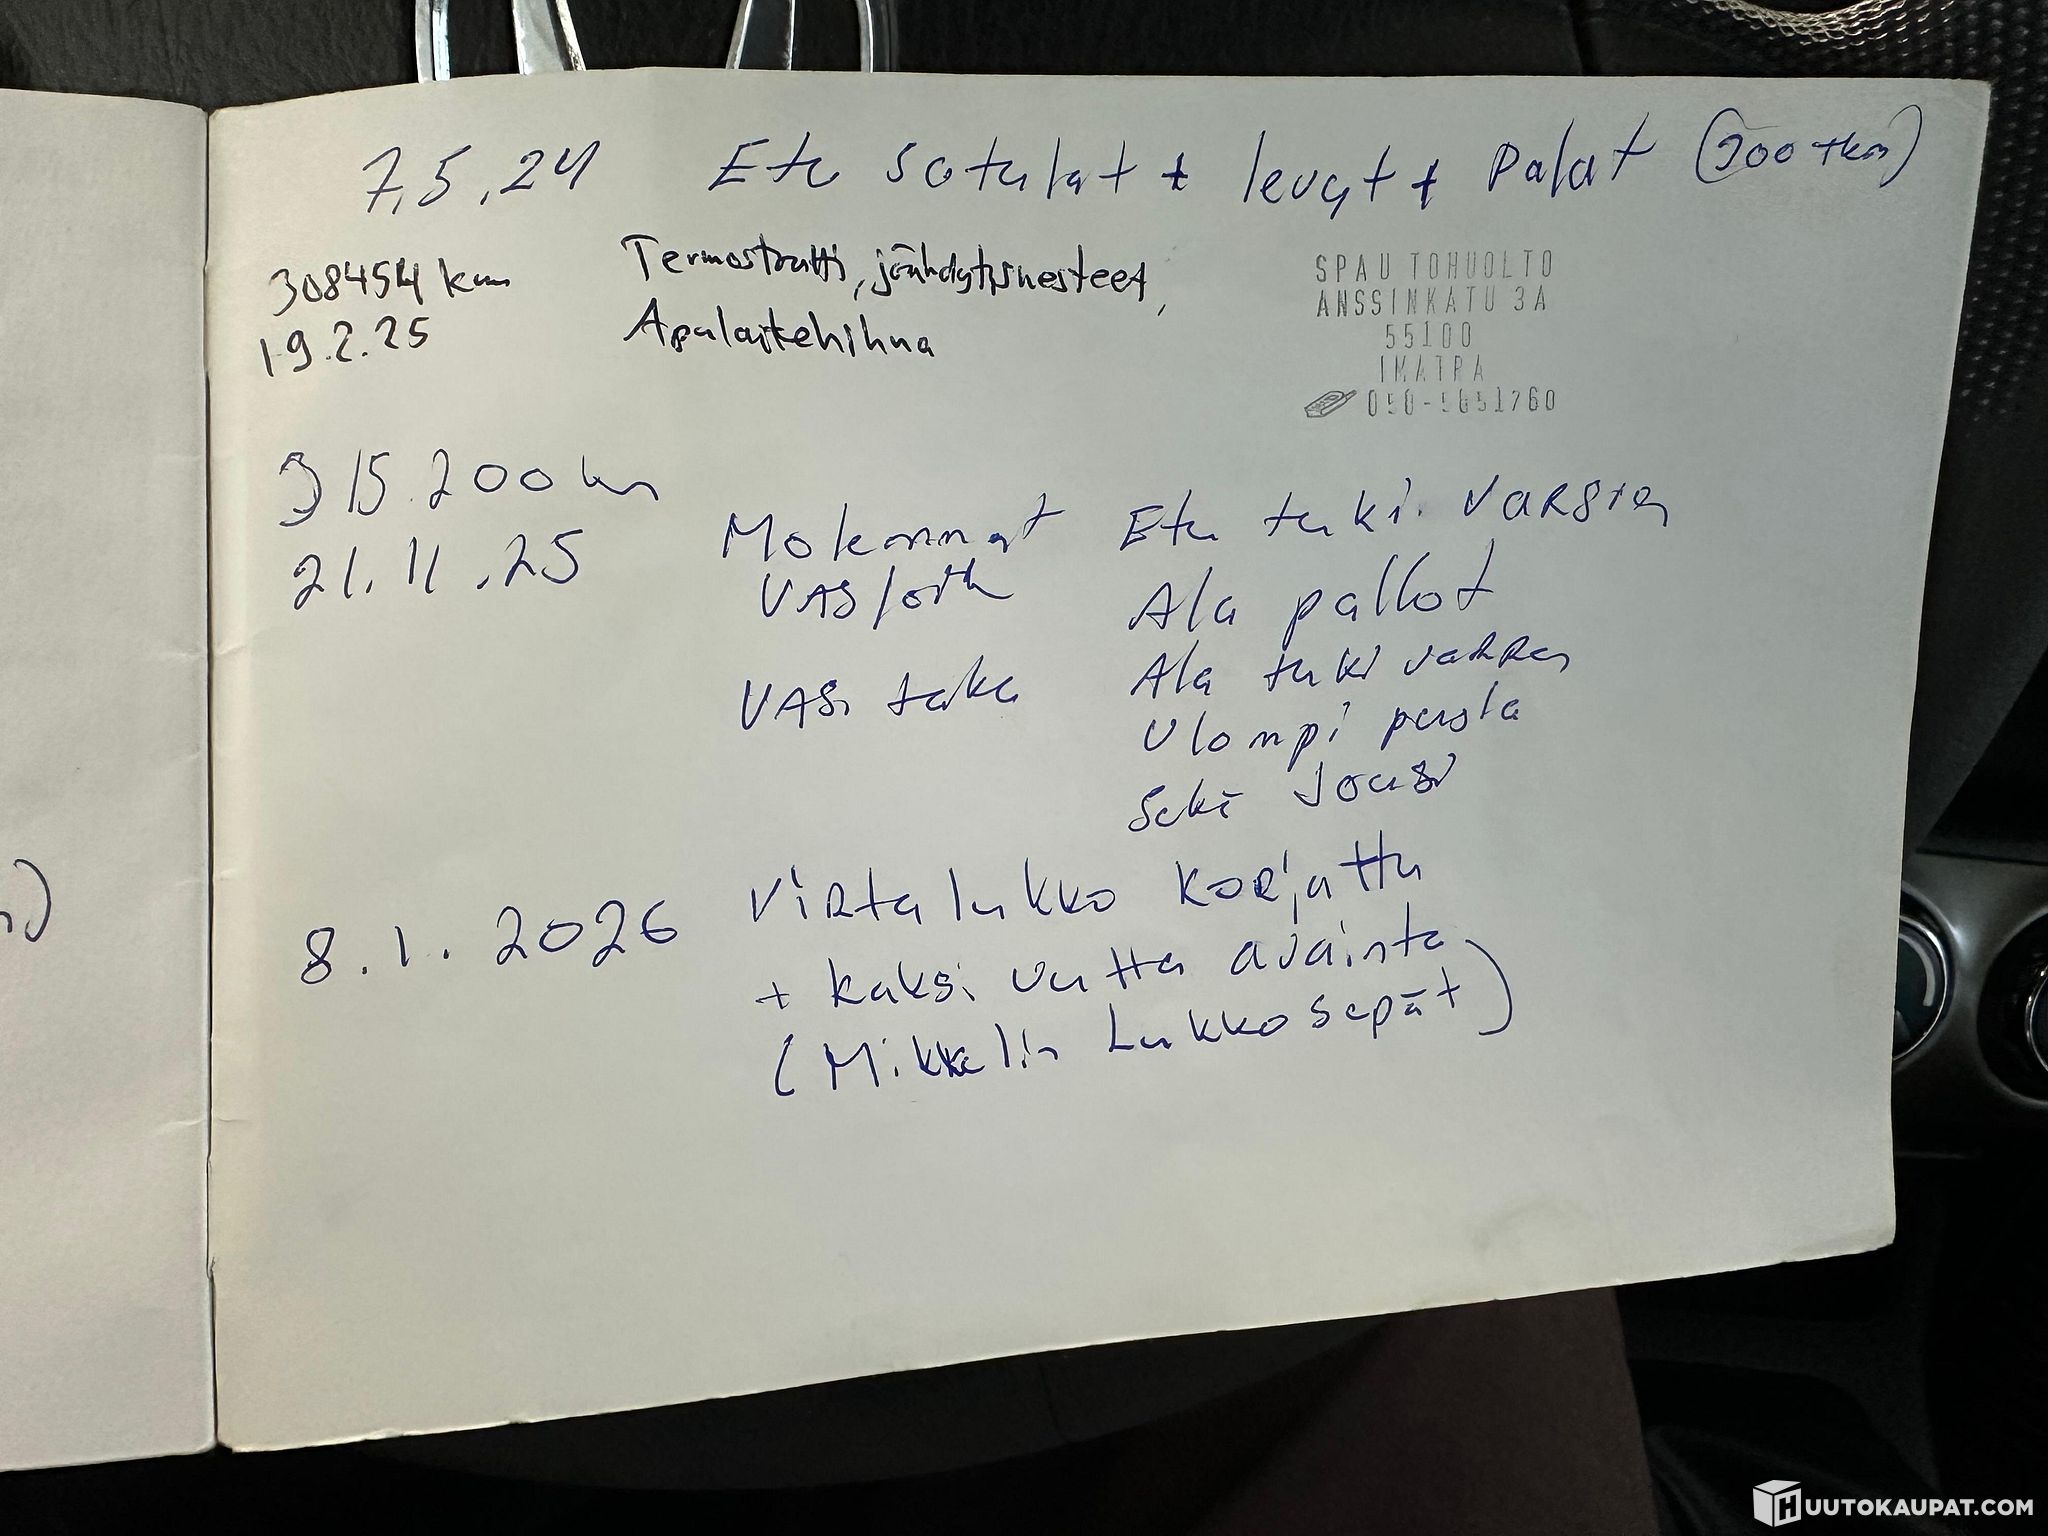 7.5.24 Etu satulat + levyt + palat (300 tkm)
308454 km Termostaatti, jäähdytysnesteet,
19.2.25 Apulaitehihna
SPAUTOHUOLTO
ANSSINKATU 3A
55100
IMATRA
050-5651760
315.200 km
21.11.25 Molemmat Etu tuki varsien
VAS/oik Ala pallot
VASi taka Ala tuki varren
Ulompi pusla
Sekä Jousi
8.1.2026 Virtalukko korjattu
+ kaksi uutta avainta
(Mikkelin Lukkosepät)
)
HUUTOKAUPAT.COM